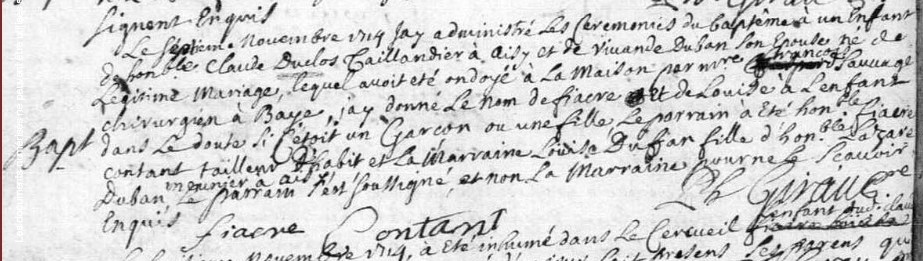 signent Enquis
Le septieme Novembre 1714 Jay administré Les Ceremonies du baptême a un Enfant
de honble Claude Duclos Taillandier à aisy et de vivande Duban son Epouse né de
Legitime Mariage, lequel avoit eté ondoyé a La Maison par mre françois Sauvage
chirurgien à Baye, jay donné Le Nom de fiacre et de Louise à L'enfant
Bapt
dans Le doute si C'etoit un Garçon ou une fille Le parrain à Eté honble fiacre
contant tailleur D'habit et La Marraine Louise Duban fille d'honble Lazare
Duban, meunier a aisy Le parrain s'est soussigné, et non La Marraine pour ne le Scavoir
Enquis
fiacre Contant
Novembre 1714, a Eté inhumé dans Le Cercueil L'enfant dud. claude
presens ses parens qui